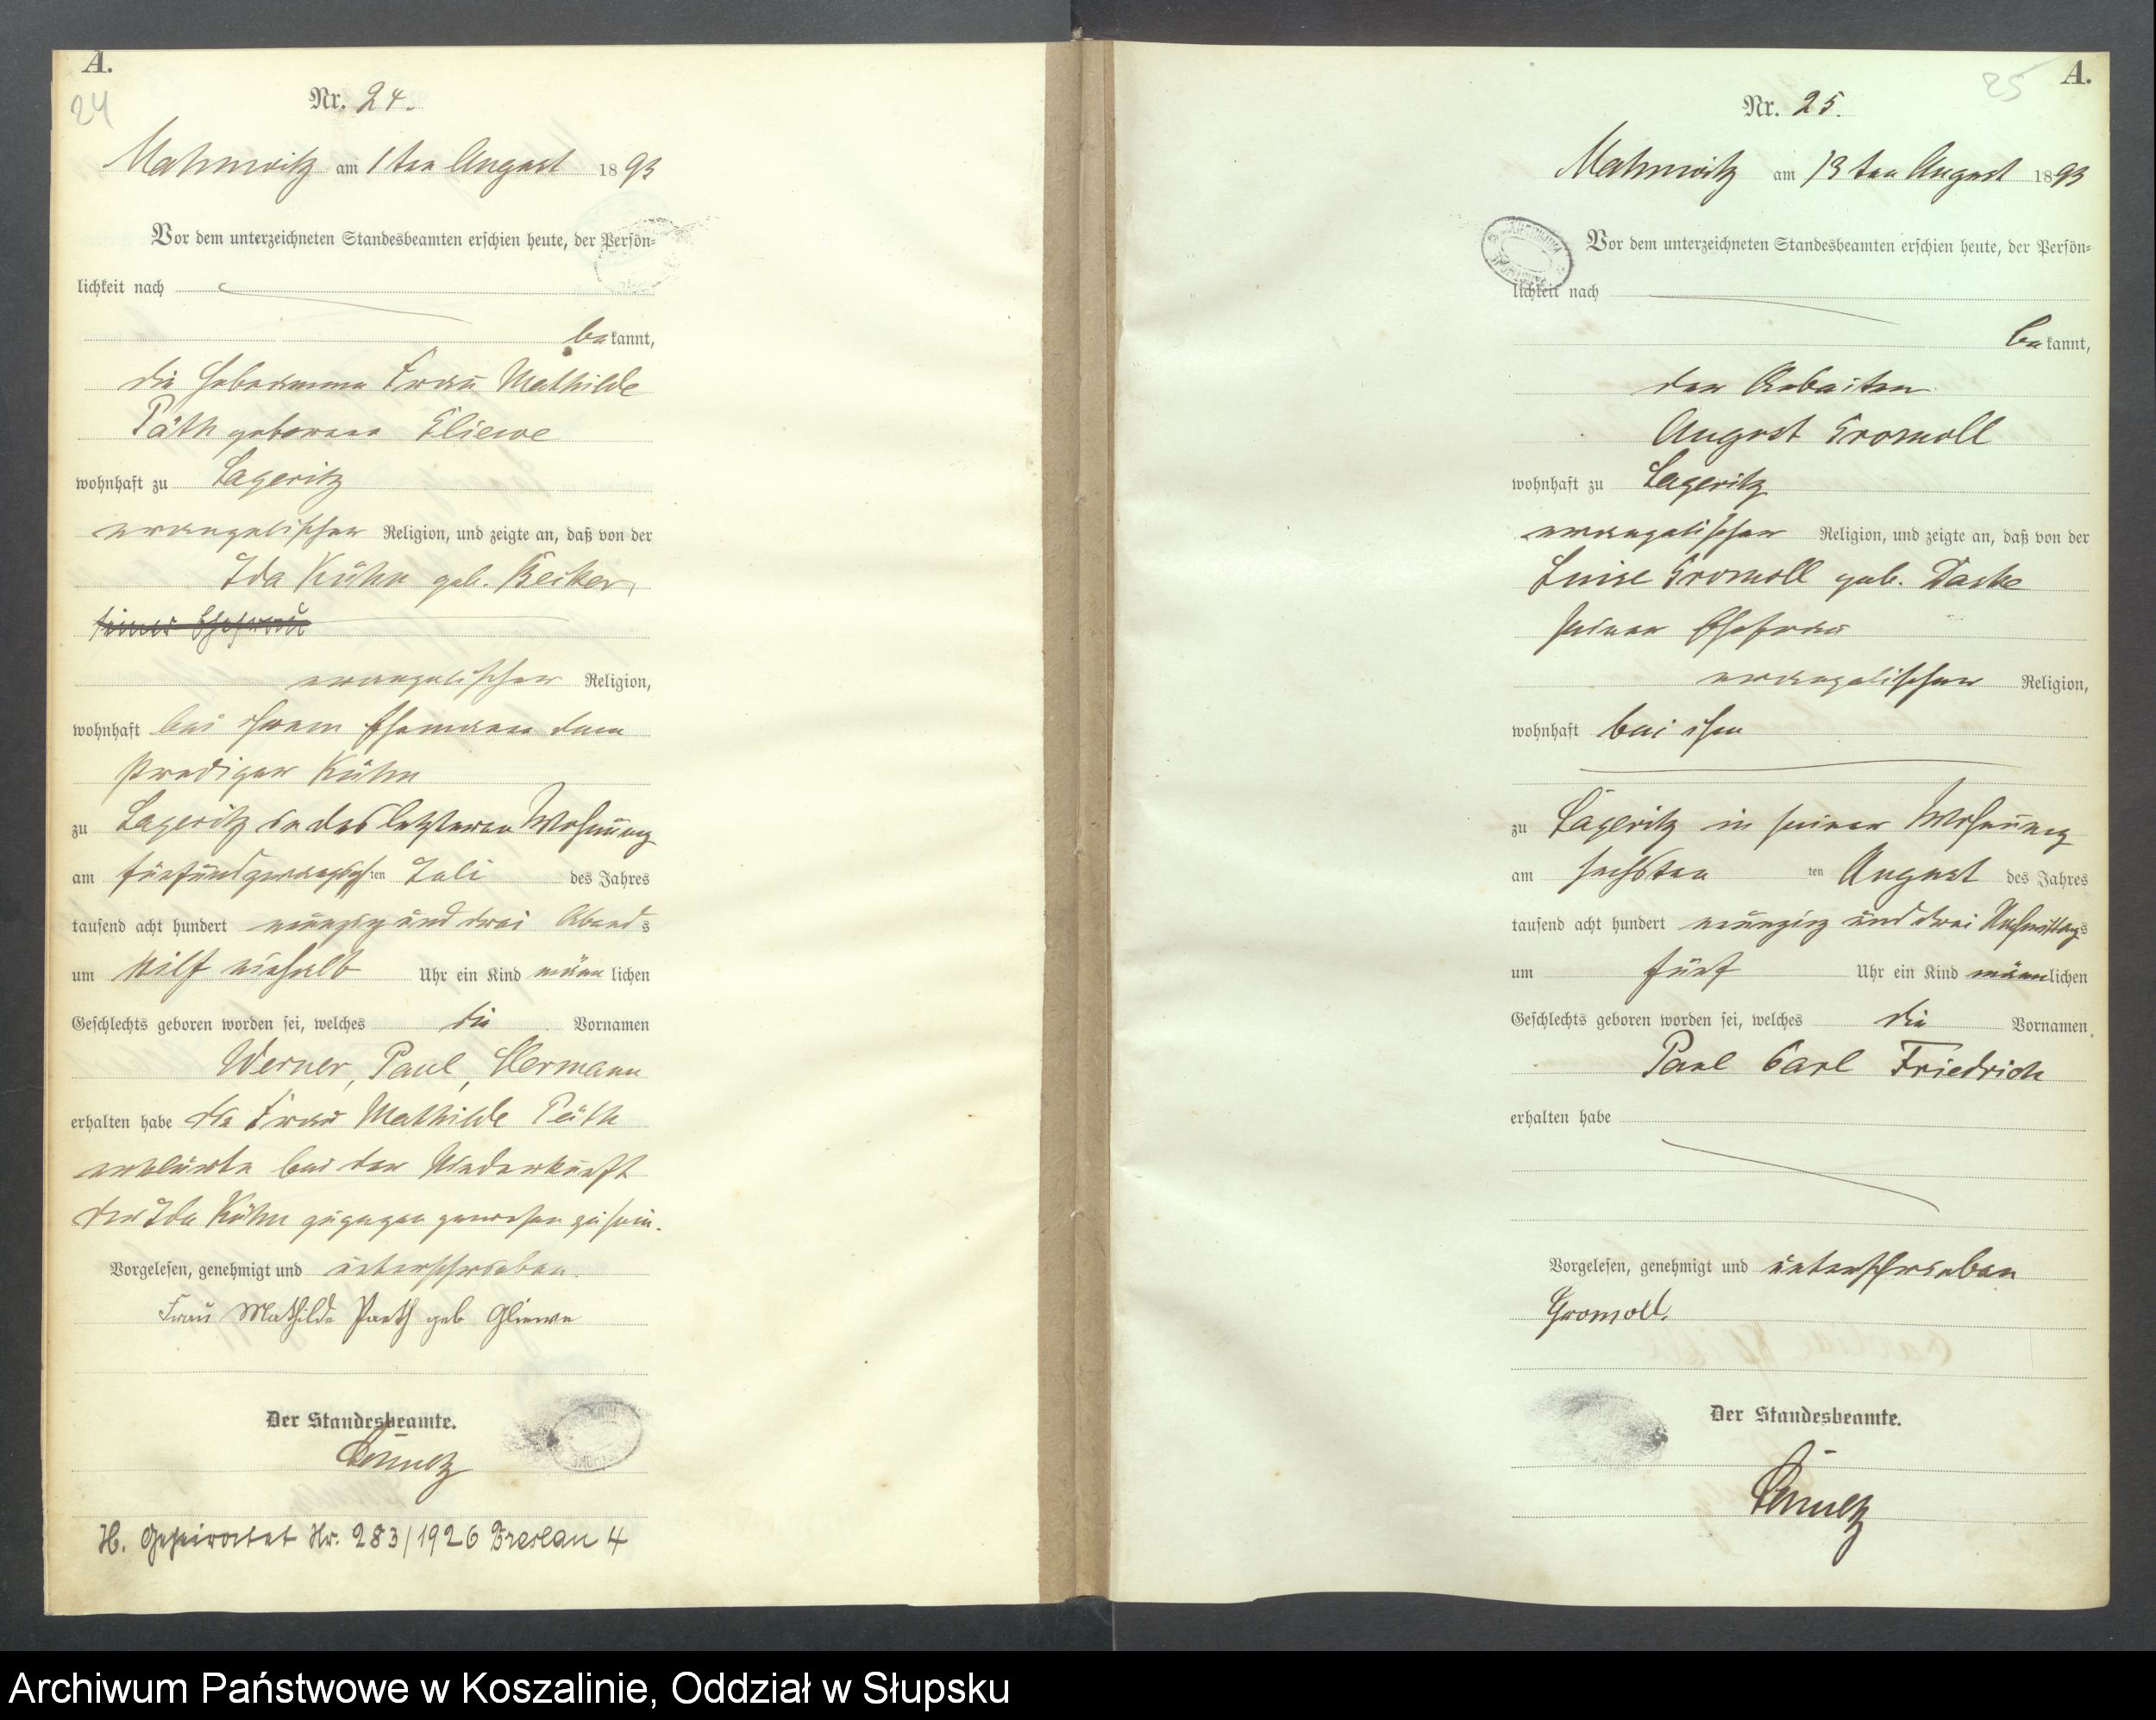 A.
24
Nr. 24.
Mahnwitz am 1ten August 1893
Vor dem unterzeichneten Standesbeamten erschien heute, der Persön=
lichkeit nach
bekannt,
die Hebeamme Frau Mathilde
Päth geborene Gliewe
wohnhaft zu Lageritz
evangelischer Religion, und zeigte an, daß von der
Ida Kühn geb. Becker,
seiner Ehefrau
evangelischer Religion,
wohnhaft bei ihrem Ehemann dem
Prediger Kühn
zu Lageritz in des letzteren Wohnung
am fünfundzwanzigsten Juli des Jahres
tausend acht hundert neunzig und drei Abends
um elf einhalb Uhr ein Kind männlichen
Geschlechts geboren worden sei, welches die Vornamen
Werner, Paul, Hermann
erhalten habe die Frau Mathilde Päth
erklärte bei der Niederkunft
der Ida Kühn zugegen gewesen zu sein.
Vorgelesen, genehmigt und unterschrieben.
Frau Mathilde Paeth geb Gliewe
Der Standesbeamte.
Schultz
H. Geheiratet Nr. 283/1926 Breslau 4
A.
25
Nr. 25.
Mahnwitz am 13ten August 1893
Vor dem unterzeichneten Standesbeamten erschien heute, der Persön=
lichkeit nach
bekannt,
der Arbeiter
August Gromoll
wohnhaft zu Lageritz
evangelischer Religion, und zeigte an, daß von der
Luise Gromoll geb. Daske
seiner Ehefrau
evangelischer Religion,
wohnhaft bei ihm
zu Lageritz in seiner Wohnung
am sechsten ten August des Jahres
tausend acht hundert neunzig und drei Nachmittags
um fünf Uhr ein Kind männlichen
Geschlechts geboren worden sei, welches die Vornamen
Paul Carl Friedrich
erhalten habe
Vorgelesen, genehmigt und unterschrieben
Gromoll.
Der Standesbeamte.
Schultz
Archiwum Państwowe w Koszalinie, Oddział w Słupsku